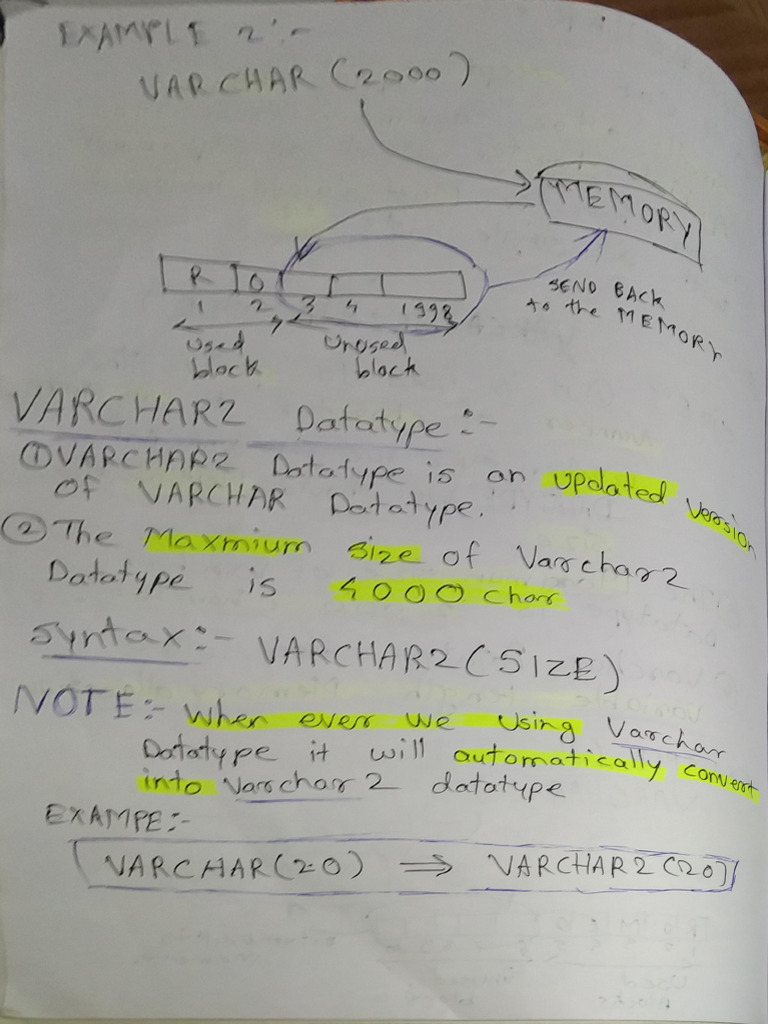 EXAMPLE 2:-
VARCHAR (2000)
MEMORY
R O
1 2 3 4 1998
SEND BACK
to the MEMORY
Used
block
Unused
block
VARCHAR2 Datatype:-
① VARCHAR2 Datatype is an updated version
of VARCHAR Datatype.
② The Maxmium size of Varchar2
Datatype is 4000 char
Syntax:- VARCHAR2 (SIZE)
NOTE:- When ever we Using Varchar
Datatype it will automatically convert
into Varchar2 datatype
EXAMPE:-
VARCHAR(20) ⇒ VARCHAR2 (20)